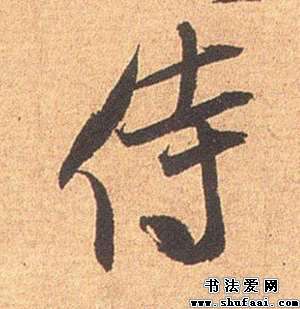 侍
书法爱网
www.shufaai.com